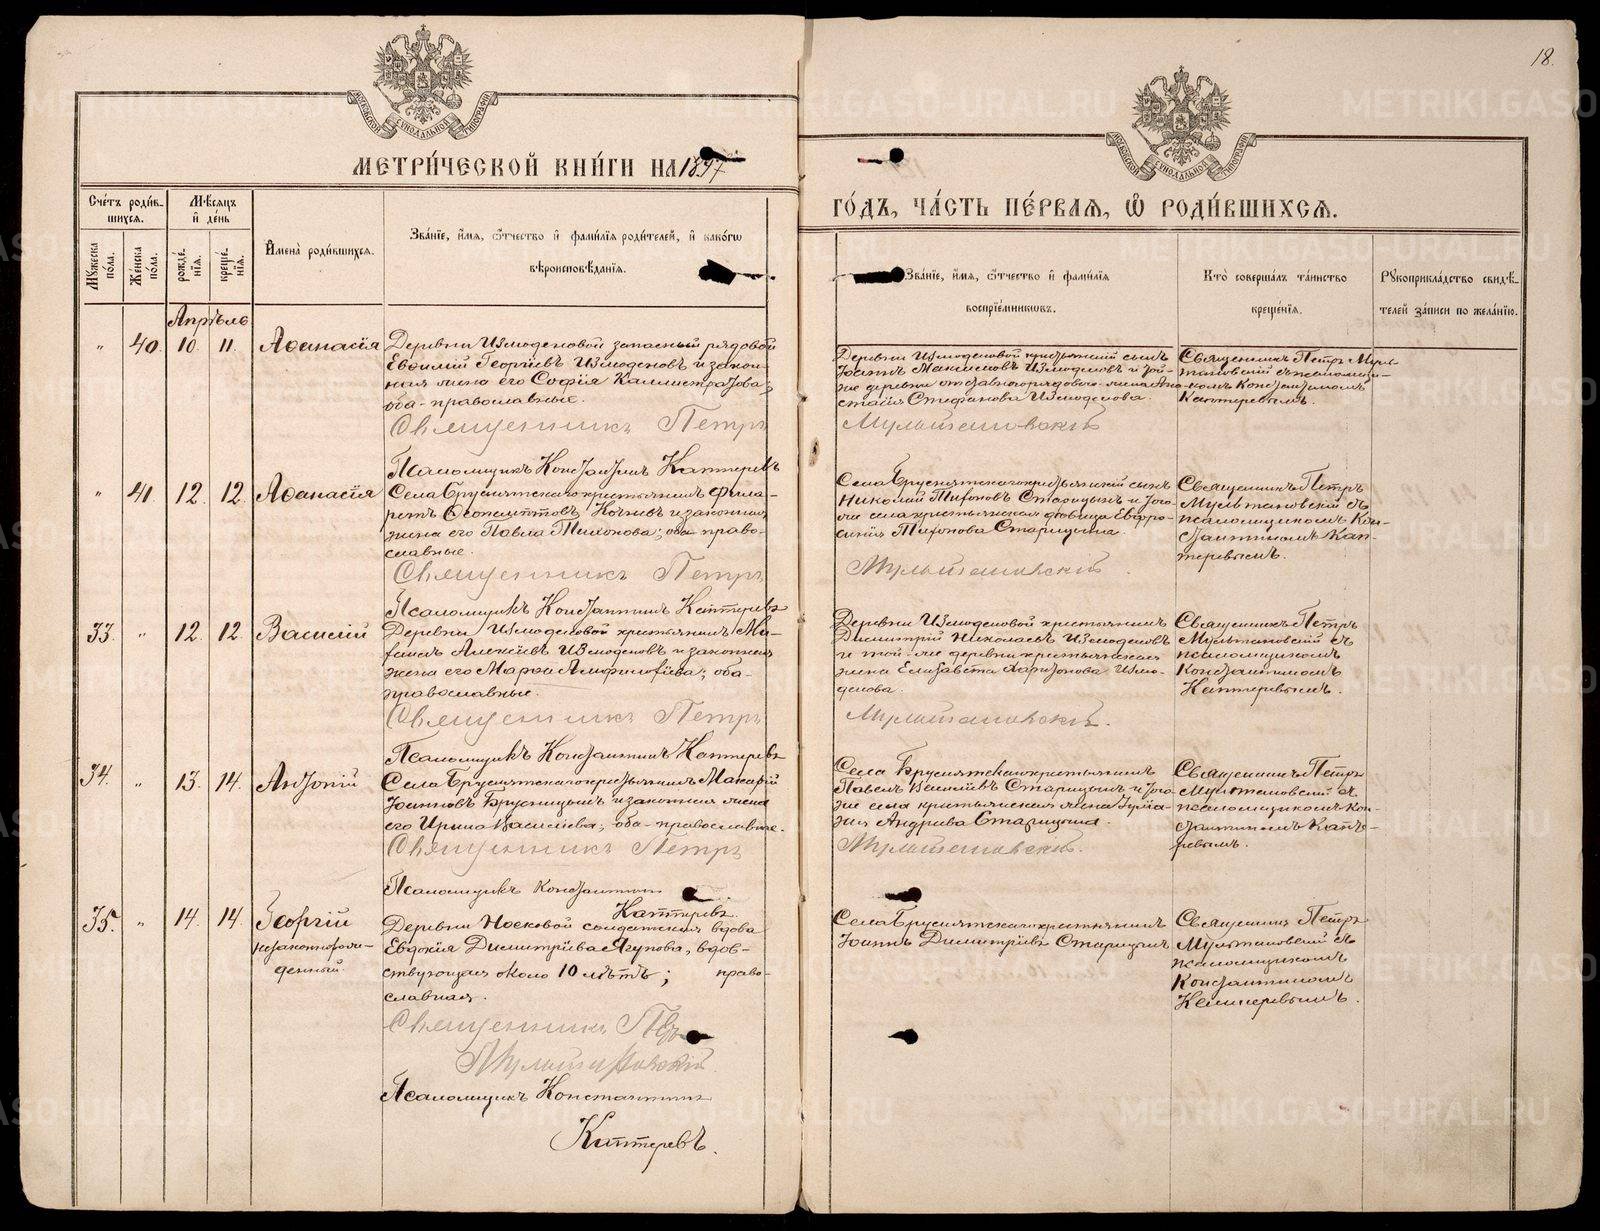 18.
МОСКОВСКОЙ СѴНОДАЛЬНОЙ ТИПОГРАФІИ
МЕТРИ́ЧЕСКОЙ КНИ́ГИ НА 1897
МОСКОВСКОЙ СѴНОДАЛЬНОЙ ТИПОГРАФІИ
ГО́ДЪ, ЧА́СТЬ ПЕ́РВАЯ, Ѡ҆ РОДИ́ВШИХСЯ.
Сче́тъ роди́в-
шихся.
Мꙋ́жеска по́ла.
Же́нска по́ла.
Мѣ́сяцъ
и҆ де́нь
рожде́нїя.
креще́нїя.
И҆мена̀ роди́вшихся.
Зва́нїе, и҆́мя, ѻ҆́тчество и҆ фами́лїя роди́телей, и҆ како́гѡ
вѣроисповѣ́данїя.
Зва́нїе, и҆́мя, ѻ҆́тчество и҆ фами́лїя
воспрїе́мниковъ.
Кто̀ соверша́лъ та́инство
креще́нїя.
Рꙋкоприкла́дство свидѣ́-
телей за́писи по жела́нїю.
Апрѣль
" 40. 10. 11. Аѳанасія
Деревни Измоденовой запасный рядовой
Евѳимій Георгіевъ Измоденовъ и закон-
ная жена его Софія Каллистратова;
оба-православные.
Священникъ Петръ
Псаломщикъ Константинъ Каптеревъ
Деревни Измоденовой крестьянскій сынъ
Іоаннъ Максимовъ Измоденовъ и той-
же деревни отставного рядового жена Ана-
стасія Стефанова Измоденова.
Мультановскій
Священникъ Петръ Муль-
тановскій съ псаломщи-
комъ Константиномъ
Каптеревымъ.
" 41. 12. 12. Аѳанасія
Села Брусянскаго крестьянинъ Фила-
ретъ Кочневъ и законная
жена его Павла Тихонова; оба-право-
славные.
Священникъ Петръ
Псаломщикъ Константинъ Каптеревъ
Села Брусянскаго крестьянскій сынъ
Николай Тихоновъ Старицынъ и того-
же села крестьянская дѣвица Евфро-
синія Тихонова Старицына.
Мультановскій
Священникъ Петръ
Мультановскій съ
псаломщикомъ Кон-
стантиномъ Кап-
теревымъ.
33. " 12. 12. Василій
Деревни Измоденовой крестьянинъ Ми-
хаилъ Алексѣевъ Измоденовъ и законная
жена его Марѳа Амфилохіева; оба-
православные.
Священникъ Петръ
Псаломщикъ Константинъ Каптеревъ
Деревни Измоденовой крестьянинъ
Димитрій Николаевъ Измоденовъ
и той-же деревни крестьянская
жена Елизавета Харитонова Измо-
денова.
Мультановскій.
Священникъ Петръ
Мультановскій съ
псаломщикомъ
Константиномъ
Каптеревымъ.
34. " 13. 14. Антоній
Села Брусянскаго крестьянинъ Макарій
Іоанновъ Брусницынъ и законная жена
его Ирина Васильева; оба-православные.
Священникъ Петръ
Псаломщикъ Константинъ
Каптеревъ.
Села Брусянскаго крестьянинъ
Павелъ Васильевъ Старицынъ и того-
же села крестьянская жена Іулiа-
нія Андреева Старицына.
Мультановскій.
Священникъ Петръ
Мультановскій съ
псаломщикомъ Кон-
стантиномъ Капте-
ревымъ.
35. " 14. 14. Георгій
незаконнорож-
денный.
Деревни Носковой солдатская вдова
Евдокія Димитріева Ягупова, вдов-
ствующая около 10 лѣтъ; право-
славная.
Священникъ Петръ
Мультановскій.
Псаломщикъ Константинъ
Каптеревъ.
Села Брусянскаго крестьянинъ
Іоаннъ Димитріевъ Старицынъ
Священникъ Петръ
Мультановскій съ
псаломщикомъ
Константиномъ
Каптеревымъ.
METRIKI.GASO-URAL.RU